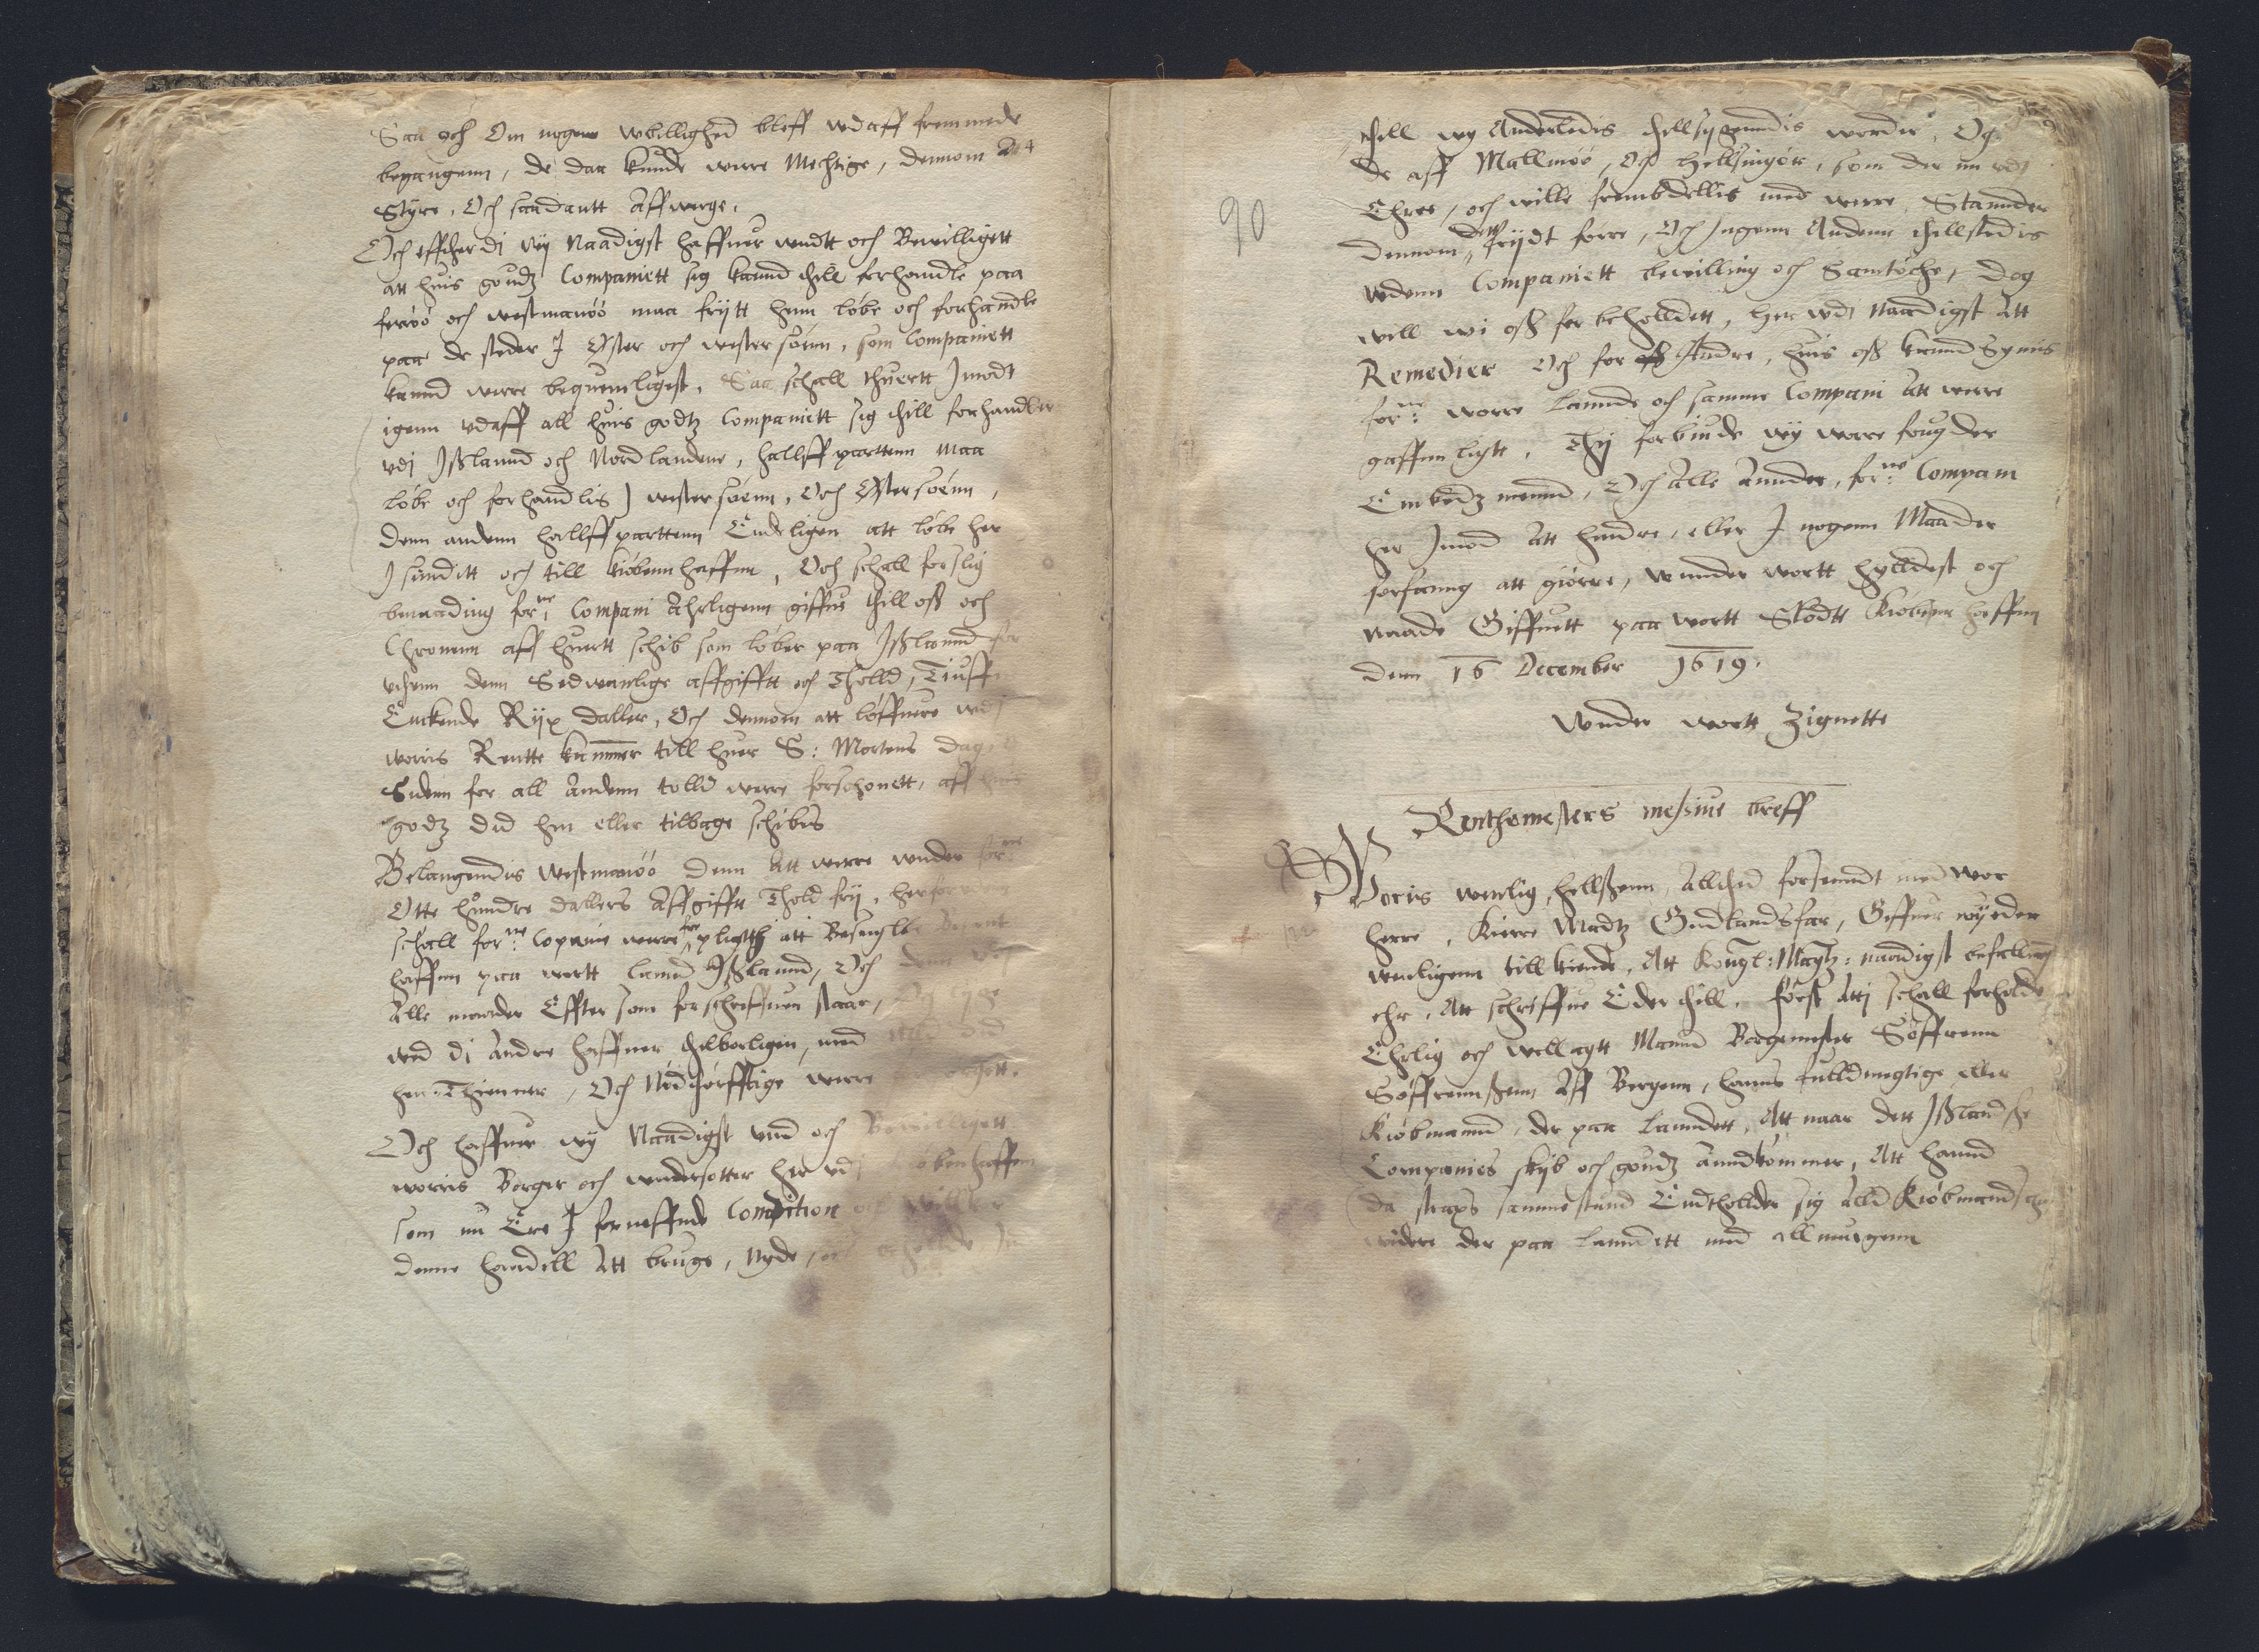 Saa och Om nogenn wbillighed bleff wdaff fremmede
begangenn, de daa kunde werre Mechtige, dennom att
Styre, Och saadantt Affwerge.
Och effther di wij Naadigst haffuer wndtt och Bewilligett
att huis goudz Companiett sig kannd thill forhandle paa
ferröö och westmanöö maa frijtt henn løbe och forhandle
paa de steder I Øster och westersöenn, som Companiett
kannd werre bequemligst. Saa schall thuertt Imodt
igenn vdaff all huis godtz Companiett sig thill forhandler
vdj Ißlannd och Nordlandene, hallffparttenn maa
løbe och forhandlis I westersøenn, Och Østersøenn,
denn andenn hallffparttenn Endeligen att løbe her
I sunditt och till kiøbennhaffnn, Och schall forslig
benaading forne: Compani Ahrligenn giffue thill oß och
Chronenn aff huertt schib som løber paa Ißlannd for
vthenn denn Sedwanlige affgifftt och Tholld, Tiuffue
Enckende Rijx daller, Och dennom att løffuere wdj
worris Rentte kammer till huer S: Mortens dag
Sidenn for all andenn tolld werre forschonett, aff huis
godz did hen eller tilbage schibis
Belangendis Westmanöö denn att werre wnder forne
Otte hundre dallers Affgifftt Thold frij, herforuden
schall forne: Copanie werre forpligtth att Besiegle
haffnn paa wortt lannd Ißlannd, Och denn
Alle maader Effter som forschreffuen staar,
wed di Andre haffner thilbørligen, med
hen Thienner, Och Nødthørfftige werre
Och haffuer wij Naadigst vnd och Bewilligett
worris Borger och wndersotter her vdj Kiøbenhaffnn
som nu Ere I forneffnde Condition och willkor
denne handell Att bruge, Nyde, och beholde In
90
thill wy Anderledis thillsigendis worder, Og
de aff Mallmöö, Och Hellsingør, som der nu vdj
Ehre, och wille frembdellis med werre, Stannder
dennom dett frijdt forre, Och Ingenn Andenn thillstedis
vdenn Companiett bewilling och Samtøcke, dog
will wi oß forbeholldett, her wdj naadigst Att
Remedier Och for Andre, huis oß kannd synnis
forne: worre Lannde och samme Compani Att werre
gaffnnligtt, Thij forbiude wij worre fougder
Embedzmennd, Och Alle Annder, forne: Compani
her Imod Att hindre, eller I nogenn Maader
forfanng att giørre, Wnnder wortt hylldest och
naade Giffuett paa wortt Slodtt Kiøbenhaffnn
denn 16 December 1619.
Wnder wortt Zignette
Renthemesters meßiue breff
Woris wenlig hellßenn, Alltid forsenndt med wor
herre, Kiere Madtz Gudlandsfar, Giffuer wij eder
wenligenn till kiende, Att Kongl: Maytz: naadigst befalling
ehr, Att schriffue Eder thill, først Att j schall forholde
Ehrlig och wellagtt Mannd Borgemester Söffrenn
Söffrennßenn Aff Bergenn, hanns fulldmegtige eller
Kiøbmannd, der paa Lanndett, Att naar dett Ißlandske
Companies skib och goudz Anndkommer, Att hannd
da straxs samme stund Endtholder sig Alld Kiøbmandschab
widere der paa Landett med allmuigenn